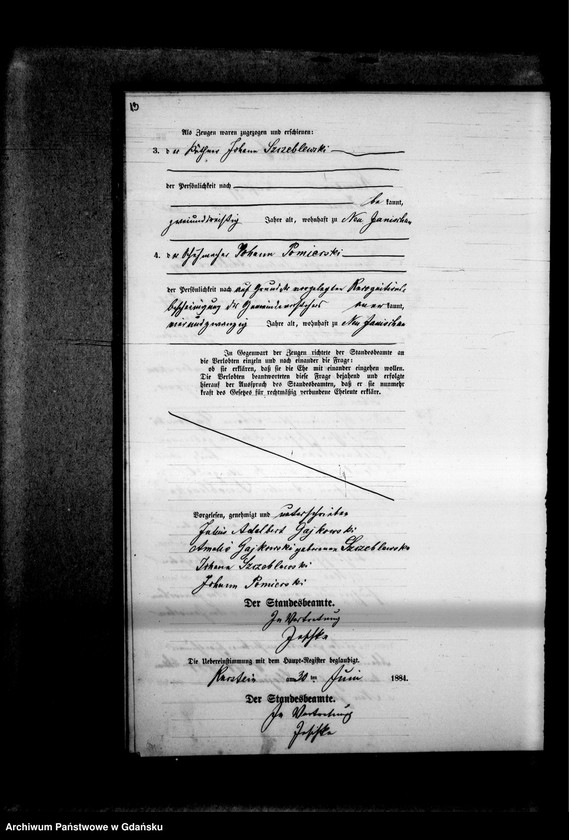 Als Zeugen waren zugezogen und erschienen:
3. der Käthner Johann Szreblewski
der Persönlichkeit nach
bekannt,
zweiunddreißig Jahre alt, wohnhaft zu Neu Janischau
4. der Johann Pomierski
der Persönlichkeit nach auf Grund der vorgelegten Recognitions-
bescheinigung des Gemeindevorstehers anerkannt,
vierundzwanzig Jahre alt, wohnhaft zu Neu Janischau
In Gegenwart der Zeugen richtete der Standesbeamte an
die Verlobten einzeln und nach einander die Frage:
ob sie erklären, daß sie die Ehe mit einander eingehen wollen.
Die Verlobten beantworteten diese Frage bejahend und erfolgte
hierauf der Ausspruch des Standesbeamten, daß er sie nunmehr
kraft des Gesetzes für rechtmäßig verbundene Eheleute erkläre.
Vorgelesen, genehmigt und unterschrieben
Julius Adalbert Gajkowski
Amalie Gajkowski geborene Szreblewski
Johann Szreblewski
Johann Pomierski
Der Standesbeamte.
In Vertretung
Jeschke
Die Uebereinstimmung mit dem Haupt-Register beglaubigt.
am 30ten Juni 1884.
Der Standesbeamte.
In Vertretung
Jeschke
Archiwum Państwowe w Gdańsku